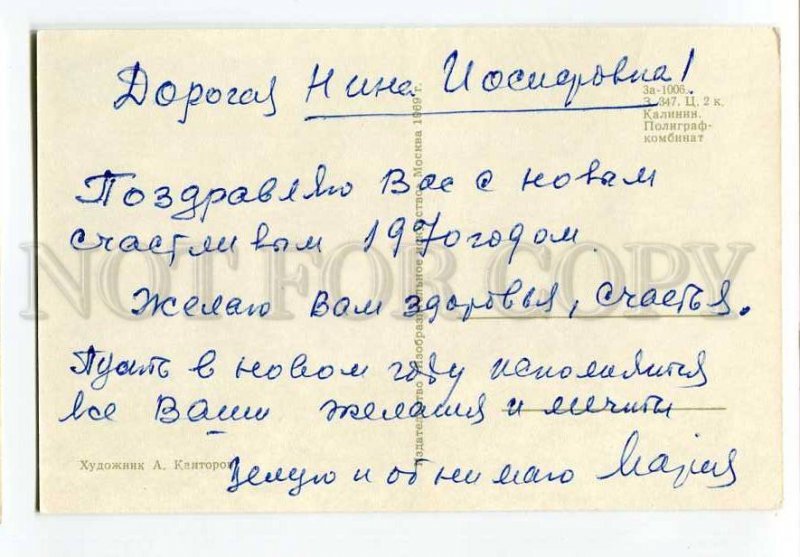 Дорогая Нина Иосифовна!
За-1006.
З. 347. Ц. 2 к.
Калинин.
Полиграф-
комбинат
Поздравляю Вас с новам
счастливым 1970 годом.
Желаю Вам здоровья, счастья.
Пусть в новом году исполнится
все Ваши желания и мечты
Целую и обнимаю Мария
Художник А. Канторов
Издательство «Изобразительное искусство». Москва 1969 г.
NOT FOR COPY